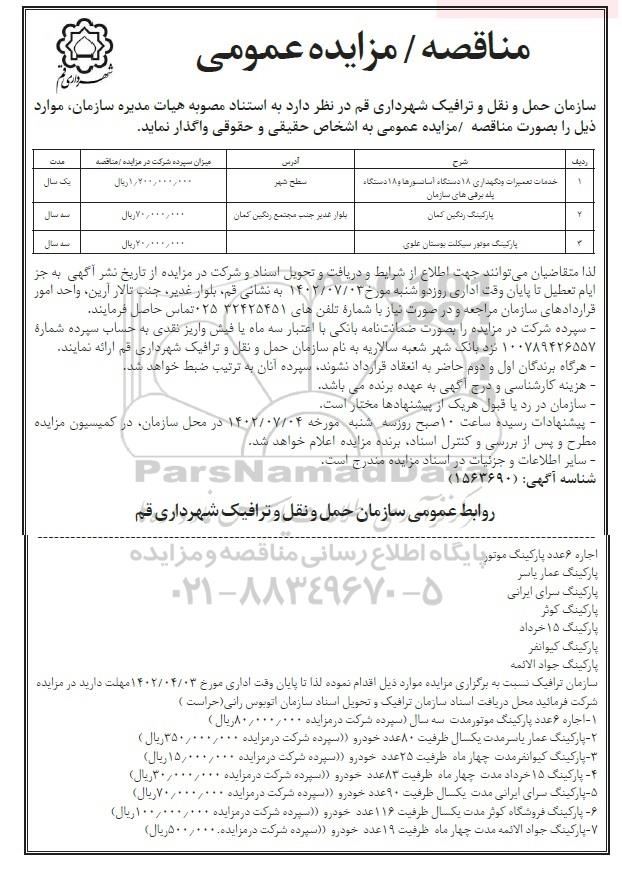 مناقصه / مزایده عمومی
شهرداری قم
سازمان حمل و نقل و ترافیک شهرداری قم در نظر دارد به استناد مصوبه هیات مدیره سازمان، موارد
ذیل را بصورت مناقصه /مزایده عمومی به اشخاص حقیقی و حقوقی واگذار نماید.
ردیف شرح آدرس میزان سپرده شرکت در مزایده /مناقصه مدت
۱ خدمات تعمیرات ونگهداری ۱۸دستگاه آسانسورها و۱۸دستگاه پله برقی های سازمان سطح شهر ۱٫۲۰۰٫۰۰۰٫۰۰۰ریال یک سال
۲ پارکینگ رنگین کمان بلوار غدیر جنب مجتمع رنگین کمان ۷۰٫۰۰۰٫۰۰۰ریال سه سال
۳ پارکینگ موتور سیکلت بوستان علوی ۲۰٫۰۰۰٫۰۰۰ریال سه سال
لذا متقاضیان می‌توانند جهت اطلاع از شرایط و دریافت و تحویل اسناد و شرکت در مزایده از تاریخ نشر آگهی به جز
ایام تعطیل تا پایان وقت اداری روزدو شنبه مورخ۱۴۰۲/۰۷/۰۳ به نشانی قم، بلوار غدیر، جنب تالار آرین، واحد امور
قراردادهای سازمان مراجعه و در صورت نیاز با شمارهٔ تلفن های ۳۲۴۲۵۴۵۱ ۰۲۵تماس حاصل فرمایند.
- سپرده شرکت در مزایده را بصورت ضمانت‌نامه بانکی با اعتبار سه ماه یا فیش واریز نقدی به حساب سپرده شمارهٔ
۱۰۰۷۸۹۴۲۶۵۵۷ نزد بانک شهر شعبه سالاریه به نام سازمان حمل و نقل و ترافیک شهرداری قم ارائه نمایند.
- هرگاه برندگان اول و دوم حاضر به انعقاد قرارداد نشوند، سپرده آنان به ترتیب ضبط خواهد شد.
- هزینه کارشناسی و درج آگهی به عهده برنده می باشد.
- سازمان در رد یا قبول هریک از پیشنهادها مختار است.
- پیشنهادات رسیده ساعت ۱۰صبح روزسه شنبه مورخه ۱۴۰۲/۰۷/۰۴ در محل سازمان، در کمیسیون مزایده
مطرح و پس از بررسی و کنترل اسناد، برنده مزایده اعلام خواهد شد.
- سایر اطلاعات و جزئیات در اسناد مزایده مندرج است.
ParsNamadData
شناسه آگهی: (۱۵۶۳۶۹۰)
روابط عمومی سازمان حمل و نقل و ترافیک شهرداری قم
پایگاه اطلاع رسانی مناقصه و مزایده
۰۲۱-۸۸۳۴۹۶۷۰-۵
اجاره ۶عدد پارکینگ موتور
پارکینگ عمار یاسر
پارکینگ سرای ایرانی
پارکینگ کوثر
پارکینگ ۱۵خرداد
پارکینگ کیوانفر
پارکینگ جواد الائمه
سازمان ترافیک نسبت به برگزاری مزایده موارد ذیل اقدام نموده لذا تا پایان وقت اداری مورخ ۱۴۰۲/۰۴/۰۳مهلت دارید در مزایده
شرکت فرمائید محل دریافت اسناد سازمان ترافیک و تحویل اسناد سازمان اتوبوس رانی(حراست )
۱-اجاره ۶عدد پارکینگ موتورمدت سه سال (سپرده شرکت درمزایده ۸۰٫۰۰۰٫۰۰۰ریال )
۲-پارکینگ عمار یاسرمدت یکسال ظرفیت ۸۰عدد خودرو ((سپرده شرکت درمزایده ۳۵۰٫۰۰۰٫۰۰۰ریال )
۳-پارکینگ کیوانفرمدت چهار ماه ظرفیت ۲۵عدد خودرو ((سپرده شرکت درمزایده ۱۵٫۰۰۰٫۰۰۰ریال)
۴- پارکینگ ۱۵خرداد مدت چهار ماه ظرفیت ۸۳عدد خودرو ((سپرده شرکت درمزایده ۳۰٫۰۰۰٫۰۰۰ریال)
۵-پارکینگ سرای ایرانی مدت یکسال ظرفیت ۹۰عدد خودرو ((سپرده شرکت درمزایده ۷۰٫۰۰۰٫۰۰۰ریال)
۶- پارکینگ فروشگاه کوثر مدت یکسال ظرفیت ۱۱۶عدد خودرو ((سپرده شرکت درمزایده ۱۰۰٫۰۰۰٫۰۰۰ریال)
۷-پارکینگ جواد الائمه مدت چهار ماه ظرفیت ۱۹عدد خودرو ((سپرده شرکت درمزایده.۵۰۰٫۰۰۰ریال)